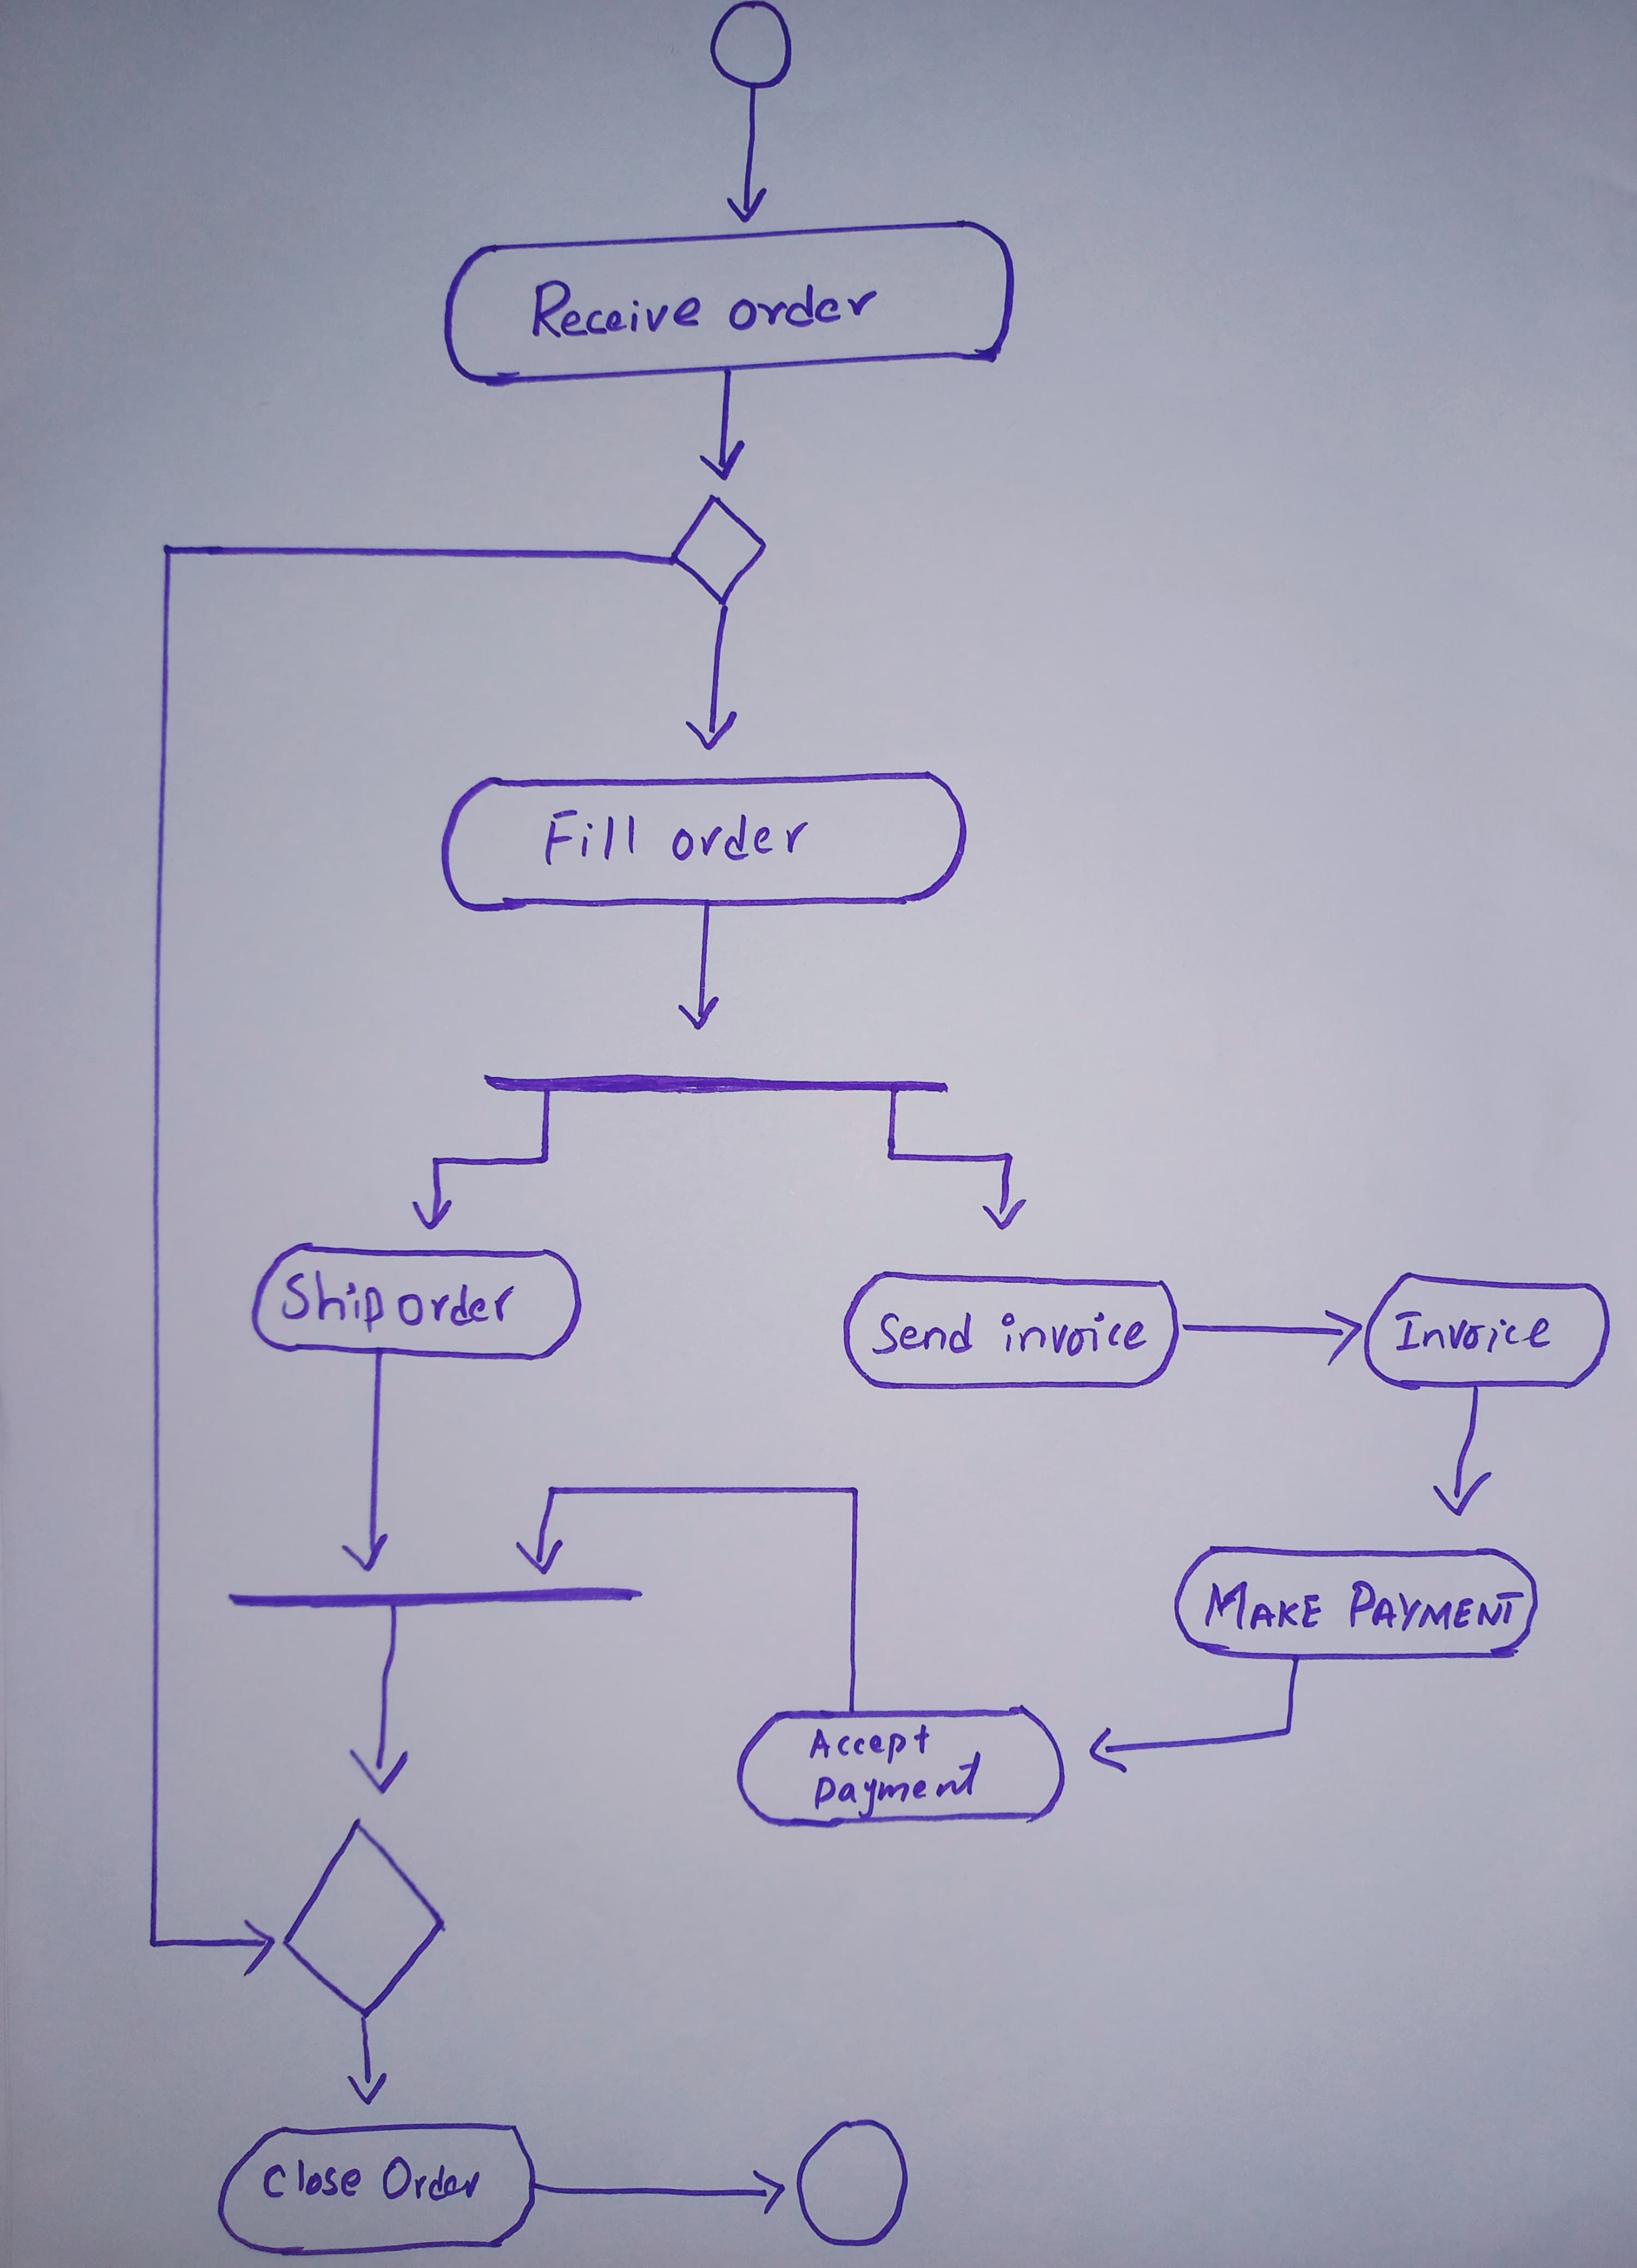 Receive order
Fill order
Ship order
Send invoice
Invoice
MAKE PAYMENT
Accept
payment
Close Order